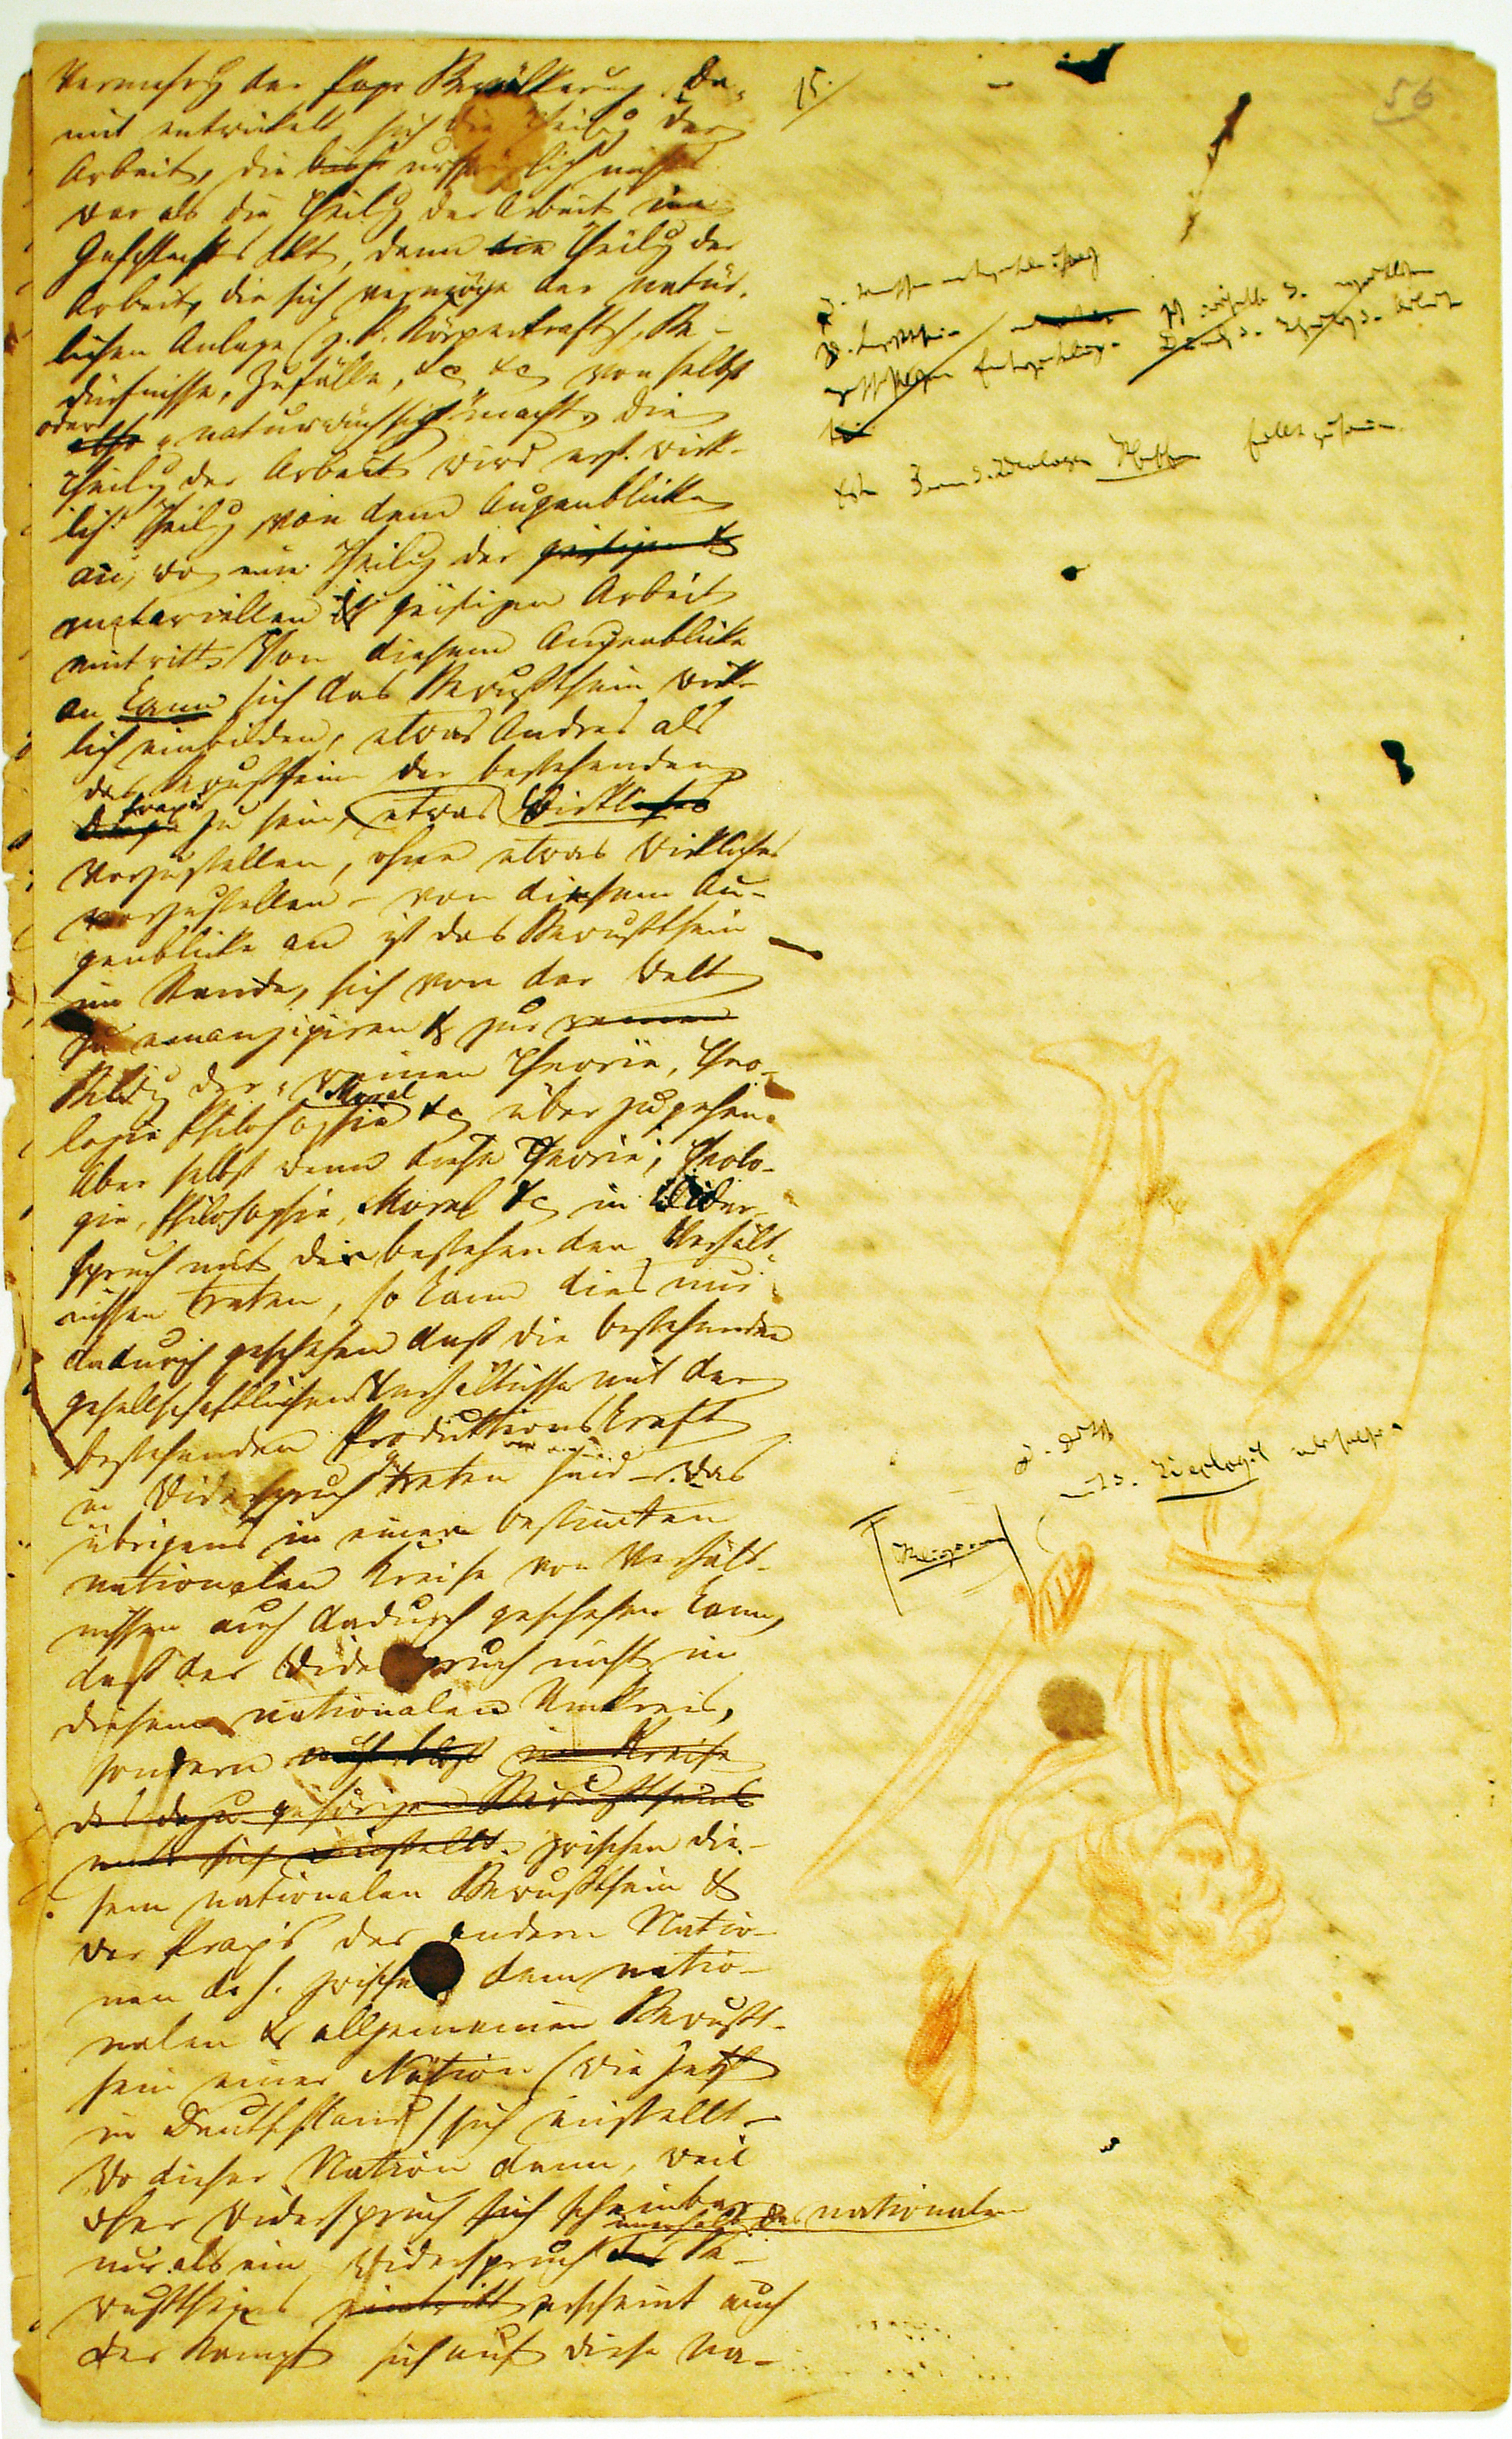 Vermehrg der Bevölkerung. Da-
mit entwickelt sich die Theilg der
Arbeit, die ursprünglich nichts
war als die Theilg der Arbeit im
Geschlechtsakt, dann die Theilg der
Arbeit, die sich vermöge der natür-
lichen Anlage (z. B. Körperkraft), Be-
dürfnisse, Zufälle, &c &c von selbst
oder
also "naturwüchsig" macht. Die
Theilg der Arbeit wird erst wirk-
lich Theilg von dem Augenblicke
an, wo eine Theilg der geistigen &
materiellen & geistigen Arbeit
eintritt. Von diesem Augenblicke
an kann sich das Bewußtsein wirk-
lich einbilden, etwas Andres als
das Bewußtsein der bestehenden
Praxis
zu sein, etwas Wirkliches
vorzustellen, ohne etwas Wirkliches
vorzustellen – von diesem Au-
genblicke an ist das Bewußtsein
im Stande, sich von der Welt
zu emanzipiren & zur reinen
Bildg der "reinen" Theorie, Theo-
Moral
logie Philosophie &c überzugehen.
Aber selbst wenn diese Theorie, Theolo-
gie, Philosophie, Moral &c in Wider-
spruch mit den bestehenden Verhält-
nissen treten, so kann dies nur
dadurch geschehen daß die bestehenden
gesellschaftlichen Verhältnisse mit der
bestehenden Produktionskraft
in Widerspruch getreten sind – was
übrigens in einem bestimten
nationalen Kreise von Verhält-
nissen auch dadurch geschehen kann,
daß der Widerspruch nicht in
diesem nationalen Umkreis,
sondern nicht bloß im Kreise
des dazu gehörigen Bewußtseins
sich einstellt. zwischen die-
sem nationalen Bewußtsein &
der Praxis der andern Natio-
nen d. h. zwischen dem natio-
nalen & allgemeinen Bewußt-
sein einer Nation (wie jetzt
in Deutschland) sich einstellt –
wo dieser Nation dann, weil
dieser Widerspruch sich scheinbar
innerhalb des nationalen
nur als ein Widerspruch Be-
wußtseins eintritt erscheint auch
der Kampf sich auf diese Na-
15.
56
Erste Form d. Ideologen, Pfaffen, fällt zusamen.
Religion
mit d. Ideologie als solcher